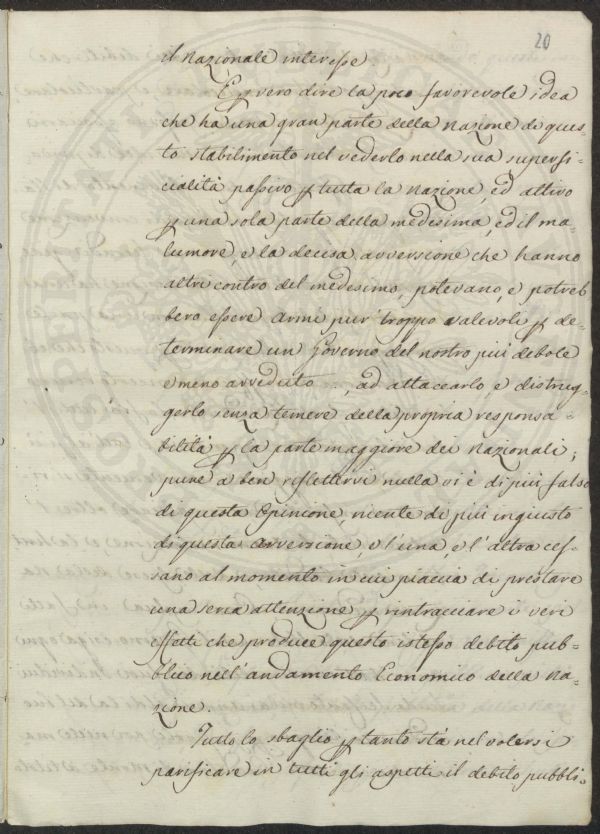 20
il nazionale interesse
E p vero dire la poco favorevole idea
che ha una gran parte della Nazione di ques-
to stabilimento nel vederlo nella sua superfi-
cialità passivo p tutta la Nazione, ed attivo
p una sola parte della medesima, ed il ma-
lumore, e la decisa avversione che hanno
altri contro del medesimo, potevano, e potreb
bero essere armi pur troppo valevoli p de-
terminare un Governo del nostro più debole
e meno avveduto ..., ad attaccarlo, e distrug-
gerlo senza temere della propria responsa-
bilità p la parte maggiore dei Nazionali;
pure a ben riflettervi nulla vi è di più falso
di questa opinione, niente di più ingiusto
di questa avversione, e l'una, e l'altra ces-
sano al momento in cui piaccia di prestare
una seria attenzione p rintracciare i veri
effetti che produce questo istesso debito pub-
blico nell'andamento Economico della Na-
zione.
Tutto lo sbaglio p tanto stà nel volersi
parificare in tutti gli aspetti il debito pubbli-